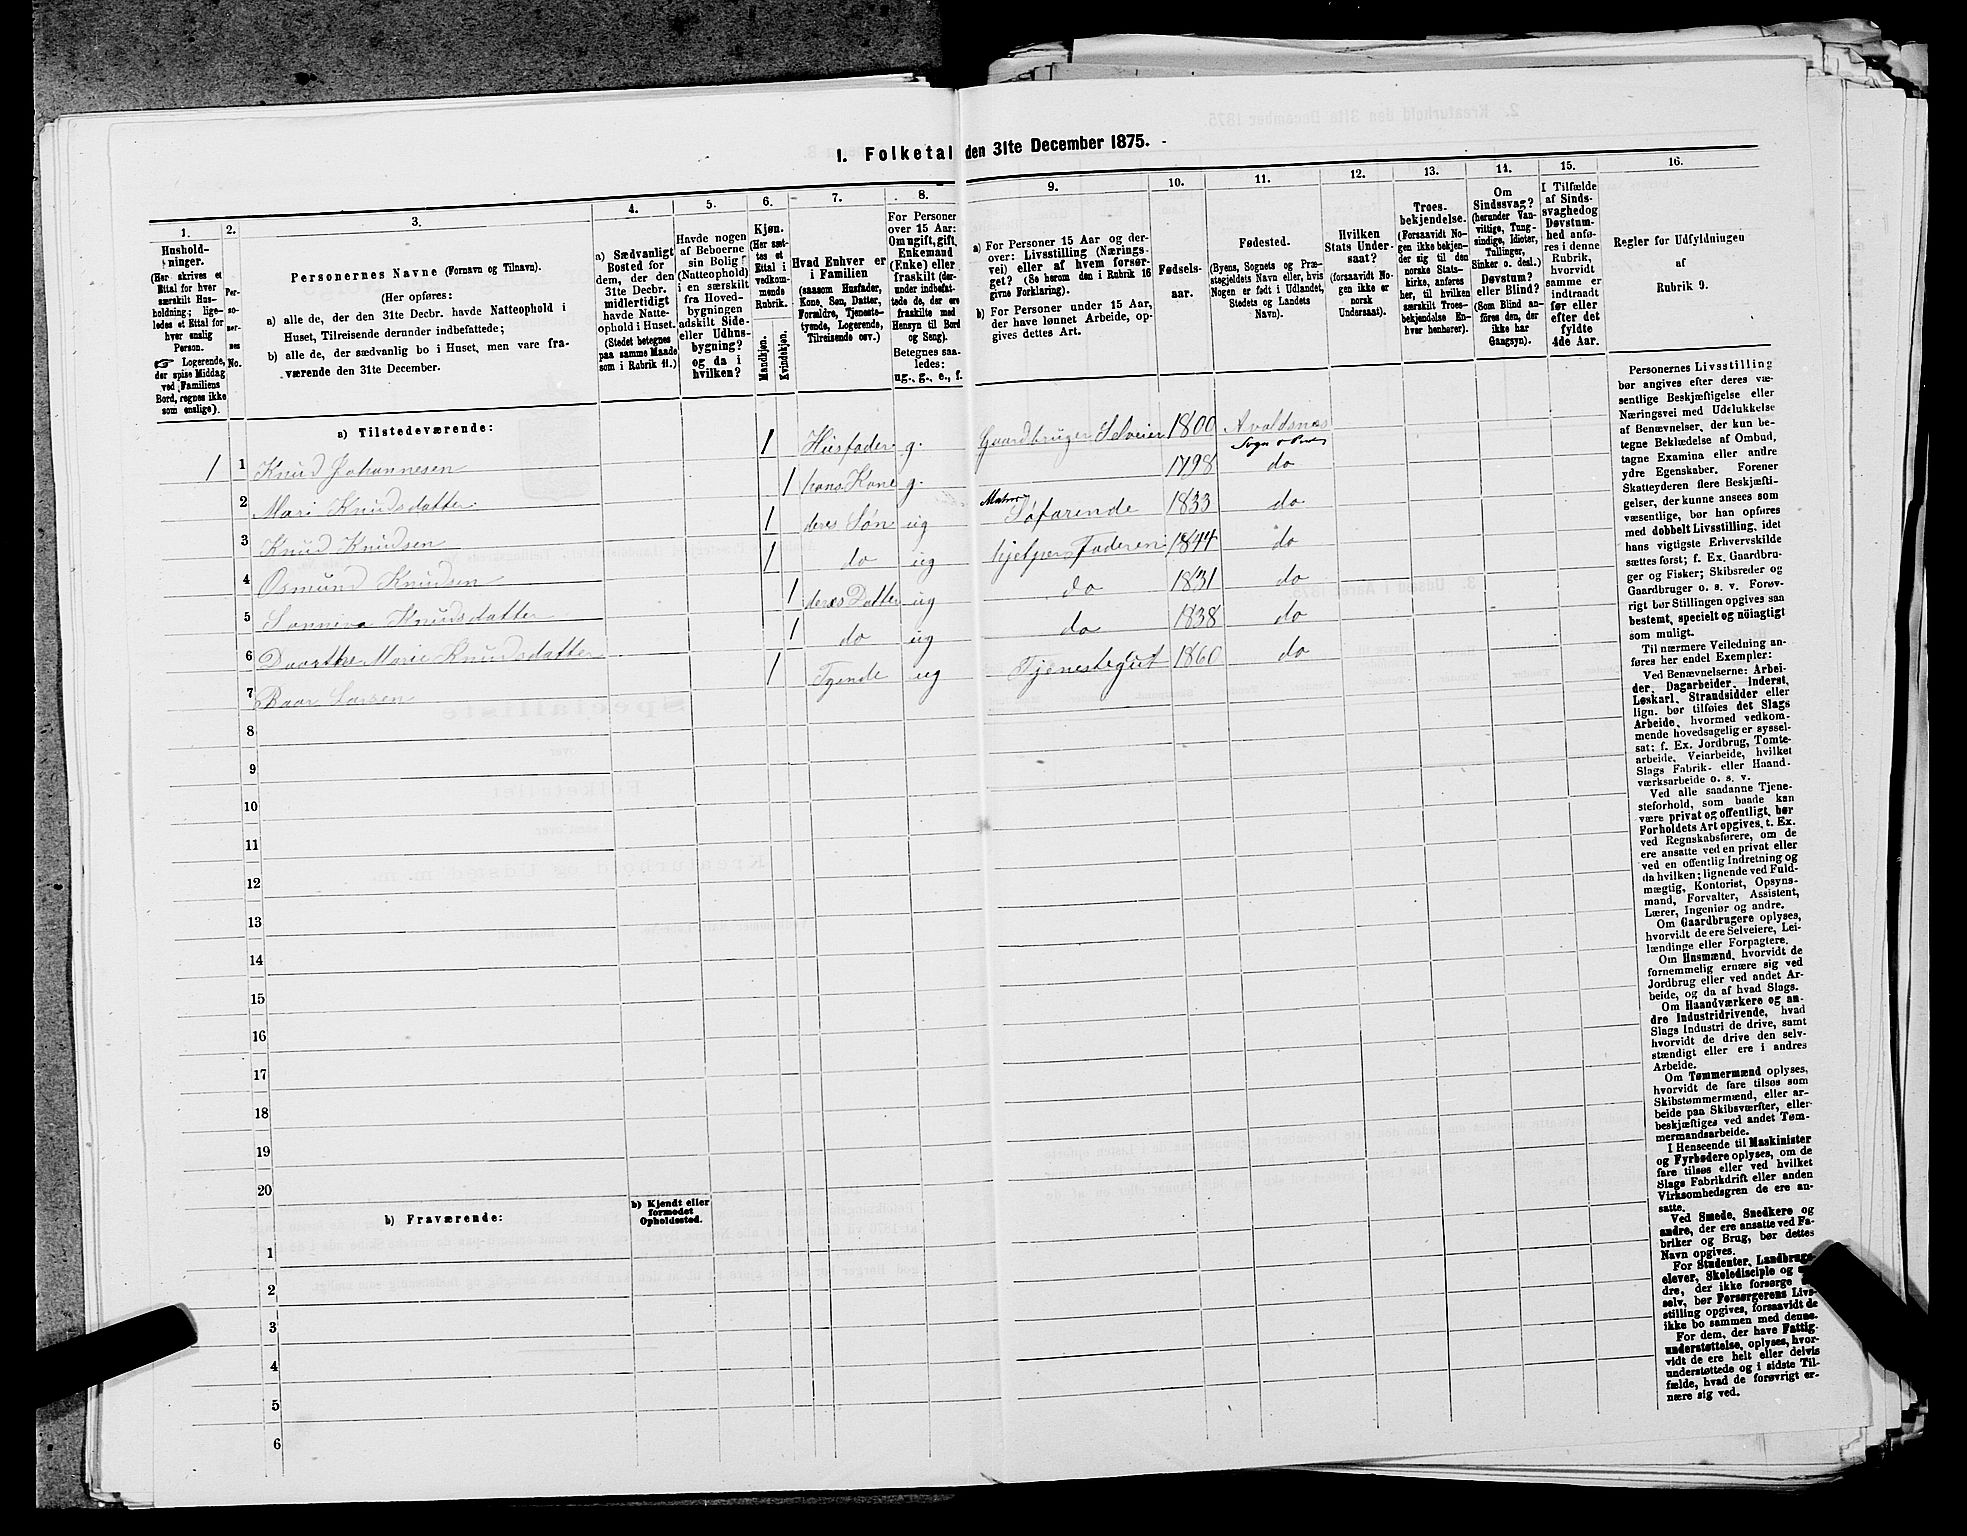 1. Folketal den 31te December 1875.
1.
Hushold-
ninger.
(Her skrives et
Ettal for hver
særskilt Hus-
holdning; lige-
ledes et Ettal for
hver enslig
Person.
☞ Logerende,
der spise Middag
ved Familiens
Bord, regnes ikke
som enslige).
2.
Per-
so-
ner-
nes
No.
3.
Personernes Navne (Fornavn og Tilnavn).
(Her opføres:
a) alle de, der den 31te Decbr. havde Natteophold i
Huset, Tilreisende derunder indbefattede;
b) alle de, der sædvanlig bo i Huset, men vare fra-
værende den 31te December.
4.
a) Sædvanligt
Bosted for
dem, der den
31te Decbr.
midlertidigt
havde Natte-
ophold i Huset.
(Stedet betegnes
paa samme Maade
som i Rubrik 11.)
5.
Havde nogen
af Beboerne
sin Bolig
(Natteophold)
i en særskilt
fra Hoved-
bygningen
adskilt Side-
eller Udhus-
bygning?
og da i
hvilken?
6.
Kjøn.
(Her sæt-
tes et
Ettal i
vedkom-
mende
Rubrik.
Mandkjøn.
Kvindekjøn.
7.
Hvad Enhver er
i Familien
(saasom Husfader,
Kone, Søn, Datter,
Forældre, Tjeneste-
tyende, Logerende,
Tilreisende osv.)
8.
For Personer
over 15 Aar:
Om ugift, gift,
Enkemand
(Enke) eller
fraskilt (der-
under indbefat-
tede de, der ere
fraskilte med
Hensyn til Bord
og Seng).
Betegnes saa-
ledes:
ug., g., e., f.
9.
a) For Personer 15 Aar og der-
over: Livsstilling (Nærings-
vei) eller af hvem forsør-
get? (Se herom den i Rubrik 16
givne Forklaring).
b) For Personer under 15 Aar,
der have lønnet Arbeide, op-
gives dettes Art.
10.
Fødsels-
aar.
11.
Fødested.
(Byens, Sognets og Præ-
stegjeldets Navn eller, hvis
Nogen er født i Udlandet,
Stedets og Landets
Navn).
12.
Hvilken
Stats Under-
saat?
(forsaavidt No-
gen ikke er
norsk
Undersaat).
13.
Troes-
bekjendelse.
(Forsaavidt No-
gen ikke bekjen-
der sig til den
norske Stats-
kirke, anføres
her, til hvilken
særskilt Troes-
bekjendelse En-
hver henhører).
14.
Om
Sindssvag?
(herunder Van-
vittige, Tung-
sindige, Idioter,
Tullinger,
Sinker o. desl.)
Døvstum?
eller Blind?
(Som Blind an-
føres den, der
ikke har
Gangsyn).
15.
I Tilfælde
af Sinds-
svaghed og
Døvstum-
hed anfø-
res i denne
Rubrik,
hvorvidt
samme er
indtraadt
før eller
efter det
fyldte
4de Aar.
16.
Regler for Udfyldningen
af
Rubrik 9.
a) Tilstedeværende:
1 1 Knud Johannesen 1 Husfader g. Gaardbruger Selveier 1800 Avaldsnæs
Sogn
2 Mari Knudsdatter 1 hans Kone g. 1798 do
3 Knud Knudsen 1 deres Søn ug Søfarende 1833 do
4 Osmund Knudsen 1 do ug hjelper Faderen 1844 do
5 Sonniva Knudsdatter 1 deres Datter ug do 1831 do
6 Daarthe Marie Knudsdatter 1 do ug do 1838 do
7 Baar Larsen 1 Tyende ug Tjenestegut 1860 do
8
9
10
11
12
13
14
15
16
17
18
19
20
b) Fraværende:
b) Kjendt eller
formodet
Opholdssted.
1
2
3
4
5
6
Personernes Livsstilling
bør angives efter deres væ-
sentlige Beskjæftigelse eller
Næringsvei med Udelukkelse
af Benævnelser, der kun be-
tegne Beklædelse af Ombud,
tagne Examina eller andre
ydre Egenskaber. Forener
Skatteyderen flere Beskjæfti-
gelser, der kunne ansees som
væsentlige, bør han opføres
med dobbelt Livsstilling, idet
hans vigtigste Erhvervskilde
sættes først; f. Ex. Gaardbru-
ger og Fisker; Skibsreder og
Gaardbruger o. s. v. Forøv-
rigt bør Stillingen opgives saa
bestemt, specielt og nöiagtigt
som muligt.
Til nærmere Veiledning an-
føres her endel Exempler:
Ved Benævnelserne: Arbei-
der, Dagarbeider, Inderst,
Løskarl, Strandsidder eller
lign. bør tilføies det Slags
Arbeide, hvormed vedkom-
mende hovedsagelig er syssel-
sat; f. Ex. Jordbrug, Tomte-
arbeide, Veiarbeide, hvilket
Slags Fabrik- eller Haand-
værksarbeide o. s. v.
Ved alle saadanne Tjene-
steforhold, som baade kan
være privat og offentligt, bør
Forholdets Art opgives, t. Ex.
ved Regnskabsførere, om de
ere ansatte ved en privat eller
ved en offentlig Indretning og
da hvilken; lignende ved Fuld-
mægtig, Kontorist, Opsyns-
mand, Forvalter, Assistent,
Lærer, Ingeniør og andre.
Om Gaardbrugere oplyses,
hvorvidt de ere Selveiere, Lei-
lændinge eller Forpagtere.
Om Husmænd, hvorvidt de
fornemmelig ernære sig ved
Jordbrug eller ved andet Ar-
beide, og da af hvad Slags.
Om Haandværkere og an-
dre Industridrivende, hvad
Slags Industri de drive, samt
hvorvidt de drive den selv-
stændigt eller ere i andres
Arbeide.
Om Tømmermænd oplyses,
hvorvidt de fare tilsøs som
Skibstømmermænd, eller ar-
beide paa Skibsværfter, eller
beskjæftiges ved andet Tøm-
mermandsarbeide.
I Henseende til Maskinister
og Fyrbødere oplyses, om de
fare tilsøs eller ved hvilket
Slags Fabrikdrift eller anden
Virksomhedsgren de ere an-
satte.
Ved Smede, Snedkere og
andre, der ere ansatte ved Fa-
briker og Brug, bør dettes
Navn opgives.
For Studenter, Landbrugs-
elever, Skoledisciple og
dre, der ikke forsørge
selv, bør Forsørgerens Livs-
stilling opgives, forsaavidt de
ikke bo sammen med denne.
For dem, der have Fattig-
understøttelse, oplyses, hvor-
vidt de ere helt eller delvis
understøttede og i sidste Til-
fælde, hvad de forøvrigt er-
nære sig ved.